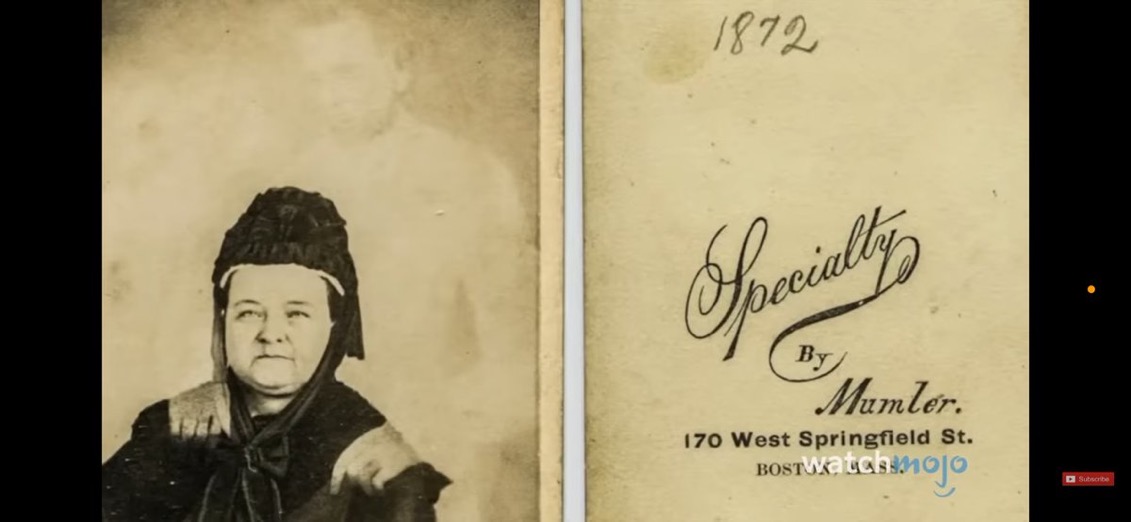 1872
Specialty
By
Mumler.
170 West Springfield St.
BOSTON, MASS.
watchmojo
Subscribe